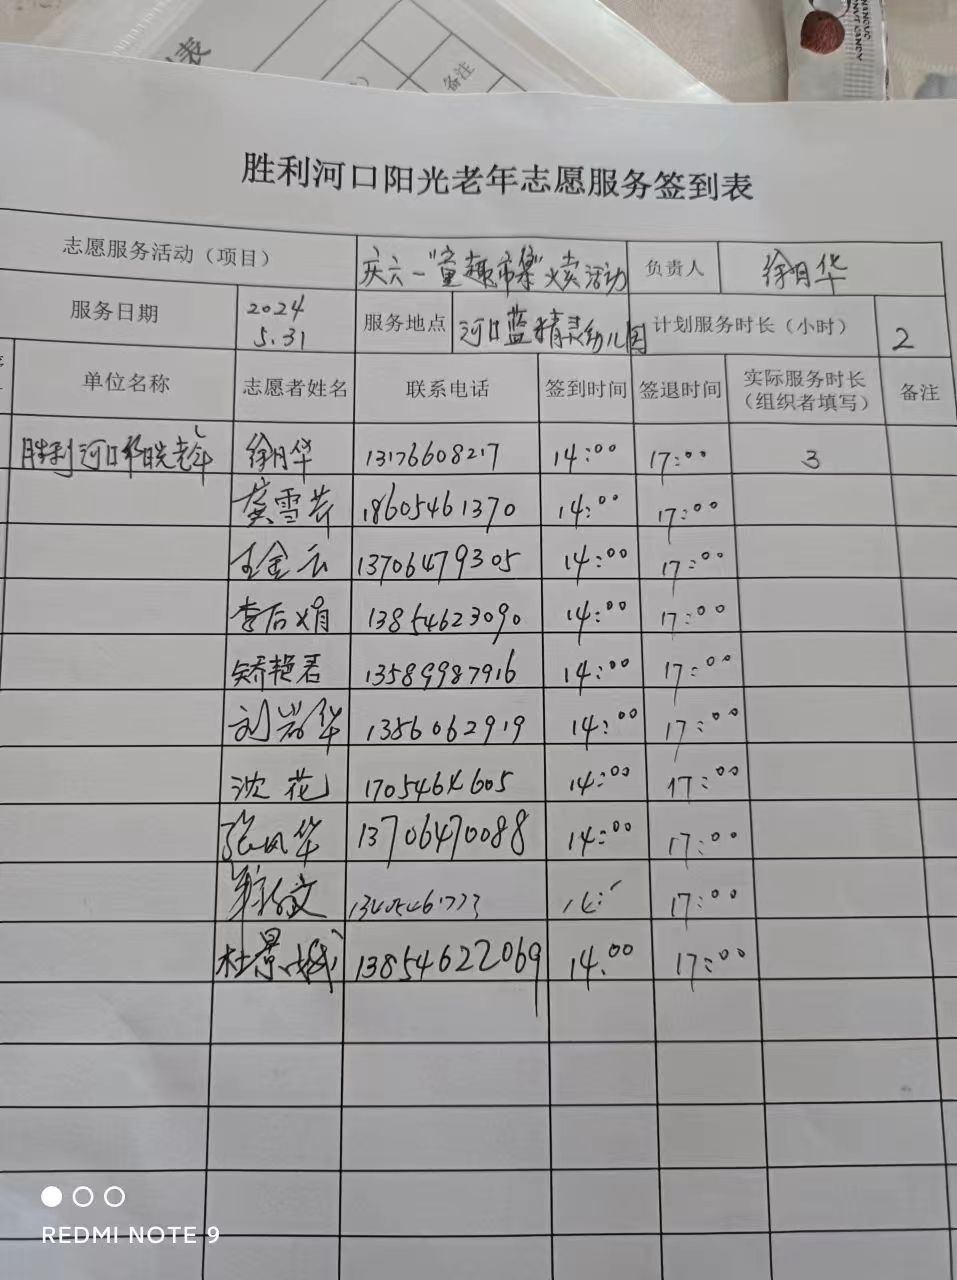 表
备注
胜利河口阳光老年志愿服务签到表
志愿服务活动（项目） 庆六一"童趣市集"义卖活动 负责人 徐月华
服务日期 2024 5.31 服务地点 河口蓝精灵幼儿园 计划服务时长（小时） 2
单位名称 志愿者姓名 联系电话 签到时间 签退时间 实际服务时长（组织者填写） 备注
胜利河口阳光老年 徐月华 13176608217 14:00 17:00 3
雪芹 18605461370 14:00 17:00
王金云 13706479305 14:00 17:00
李后娟 13854623090 14:00 17:00
矫艳君 13589987916 14:00 17:00
刘岩华 1356062919 14:00 17:00
沈花 1705464605 14:00 17:00
张凤华 13706470088 14:00 17:00
文 17:00
杜景城 13854622069 14:00 17:00
REDMI NOTE 9